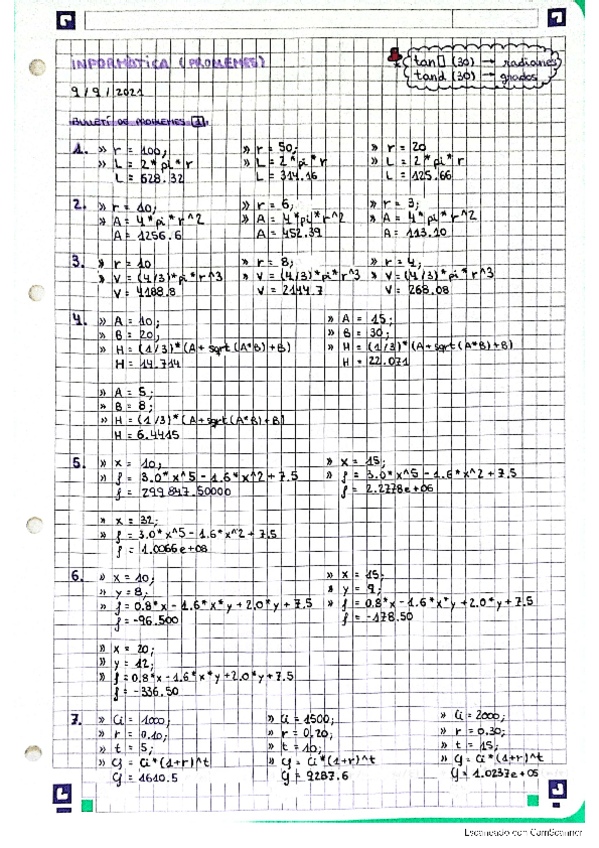 INFORMÀTICA (PROBLEMES)
tan (30) → radianes
tand (30) → grados
9/9/2021
BUTLLETÍ DE PROBLEMES 1.
1. » r = 100; » r = 50; » r = 20
» L = 2*pi*r » L = 2*pi*r » L = 2*pi*r
L = 628.32 L = 314.16 L = 125.66
2. » r = 10; » r = 6; » r = 3;
» A = 4*pi*r^2 » A = 4*pi*r^2 » A = 4*pi*r^2
A = 1256.6 A = 452.39 A = 113.10
3. » r = 10 » r = 8; » r = 4;
» V = (4/3)*pi*r^3 » V = (4/3)*pi*r^3 » V = (4/3)*pi*r^3
V = 4188.8 V = 2144.7 V = 268.08
4. » A = 10; » A = 15;
» B = 20; » B = 30;
» H = (1/3)*(A + sqrt(A*B) + B) » H = (1/3)*(A + sqrt(A*B) + B)
H = 14.714 H = 22.071
» A = 5;
» B = 8;
» H = (1/3)*(A + sqrt(A*B) + B)
H = 6.4415
5. » x = 10; » x = 15;
» f = 3.0*x^5 - 1.6*x^2 + 7.5 » f = 3.0*x^5 - 1.6*x^2 + 7.5
f = 299847.50000 f = 2.2778e+06
» x = 32;
» f = 3.0*x^5 - 1.6*x^2 + 7.5
f = 1.0066e+08
6. » x = 10; » x = 15;
» y = 8; » y = 9;
» f = 0.8*x - 1.6*x*y + 2.0*y + 7.5 » f = 0.8*x - 1.6*x*y + 2.0*y + 7.5
f = -96.500 f = -178.50
» x = 20;
» y = 12;
» f = 0.8*x - 1.6*x*y + 2.0*y + 7.5
f = -336.50
7. » Ci = 1000; » Ci = 1500; » Ci = 2000;
» r = 0.10; » r = 0.20; » r = 0.30;
» t = 5; » t = 10; » t = 15;
» Cf = Ci*(1+r)^t » Cf = Ci*(1+r)^t » Cf = Ci*(1+r)^t
Cf = 1610.5 Cf = 9287.6 Cf = 1.0237e+05
Escaneado con CamScanner